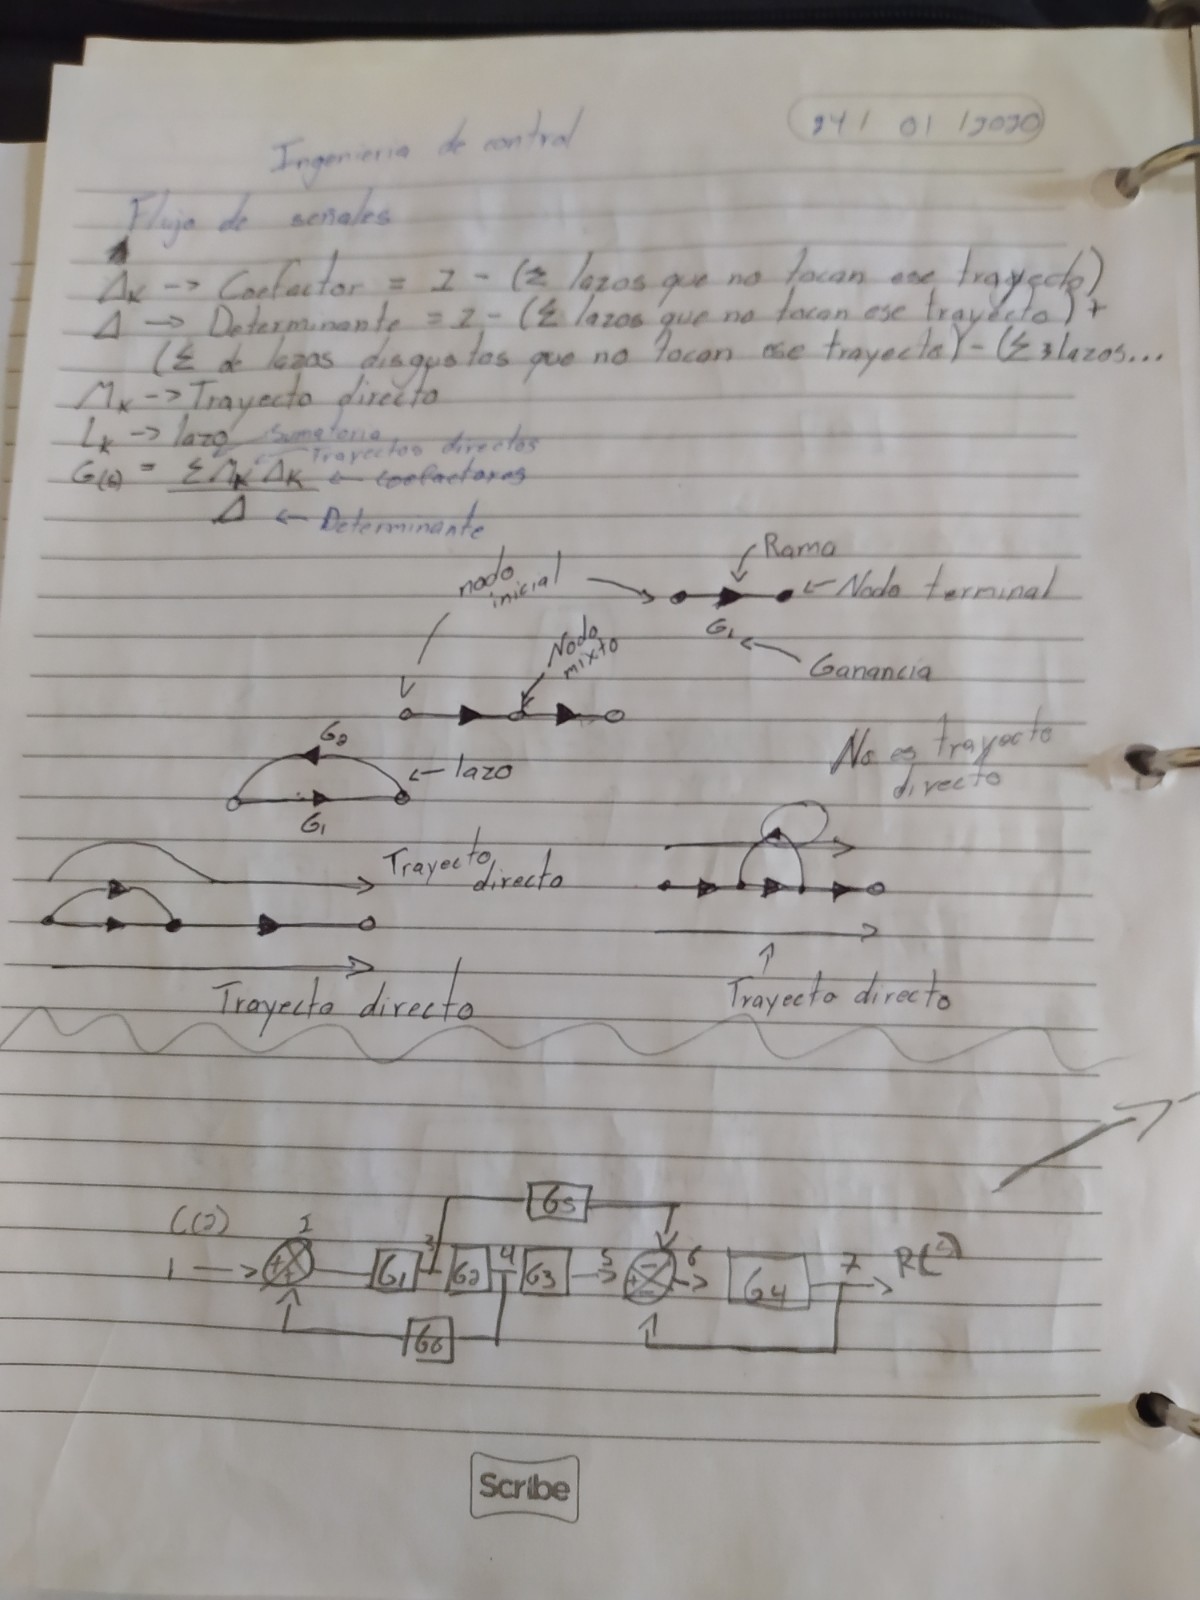 24/ 01 /2020
Ingenieria de control
Flujo de señales
Δk -> Coefactor = 1 - (Σ lazos que no tocan ese trayecto)
Δ -> Determinante = 1 - (Σ lazos que no tocan ese trayecto) +
(Σ de lazos disgustos que no tocan ese trayecto) - (Σ 3 lazos...
Mk -> Trayecto directo
Lk -> lazo Sumatoria
Trayectos directos
G(s) = ΣMk Δk <- coefactores
Δ <- Determinante
nodo inicial
Rama
Nodo terminal
G1
Ganancia
Nodo mixto
G2
lazo
G1
No es trayecto directo
Trayecto directo
Trayecto directo
Trayecto directo
G5
1 2 G1 3 G2 4 G3 5 6 G4 7
G6
Scribe